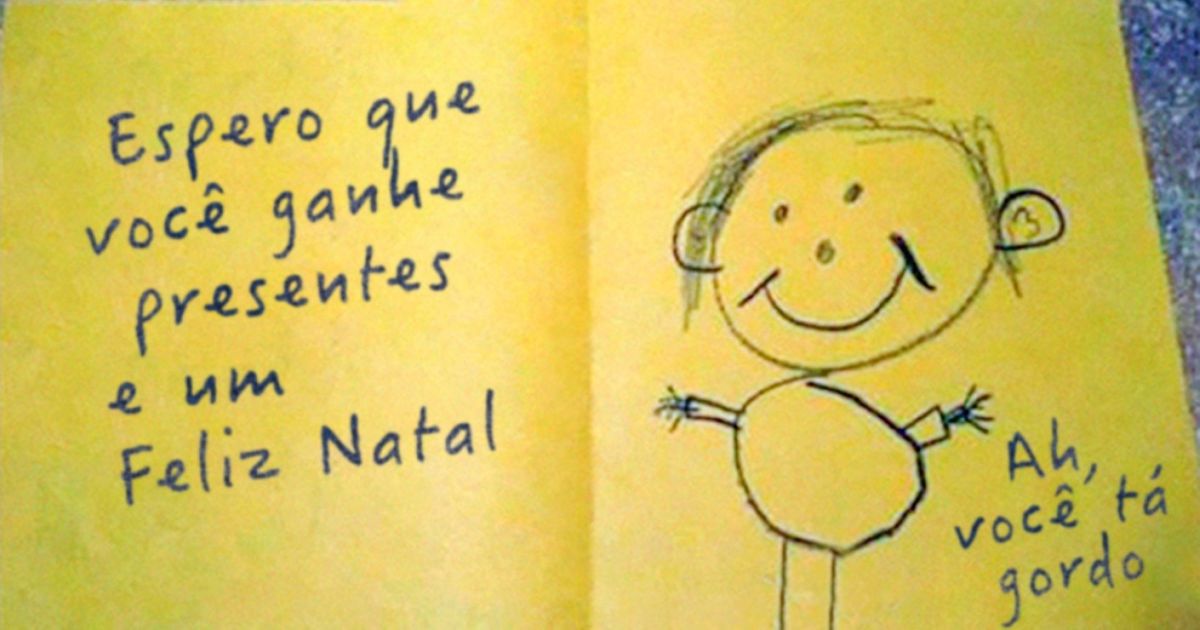 Espero que
você ganhe
presentes
e um
Feliz Natal
Ah,
você tá
gordo